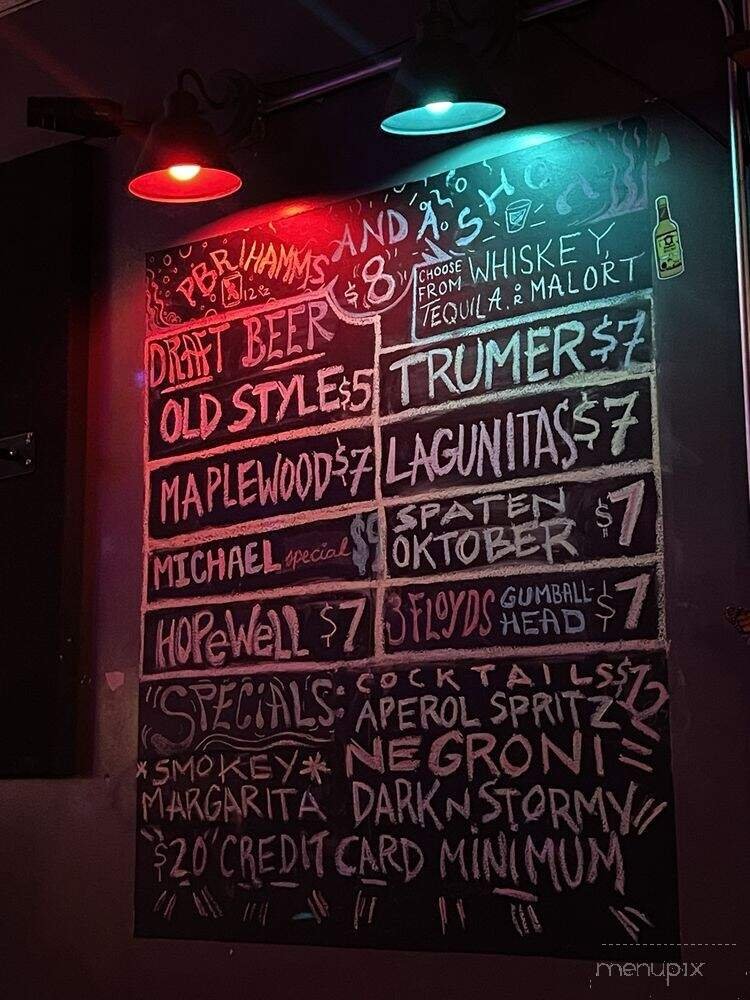 PBR/HAMMS AND A SHOT
12oz
$8
CHOOSE FROM WHISKEY,
TEQUILA, OR MALORT
DRAFT BEER
OLD STYLE $5
TRUMER $7
MAPLEWOOD $7
LAGUNITAS $7
MICHAEL special
SPATEN
OKTOBER $7
HOPEWELL $7
3 FLOYDS GUMBALL-
HEAD $7
"SPECIALS:
COCKTAILS $12
APEROL SPRITZ
*SMOKEY*
MARGARITA
NEGRONI
DARK N STORMY
"$20" CREDIT CARD MINIMUM
menupix